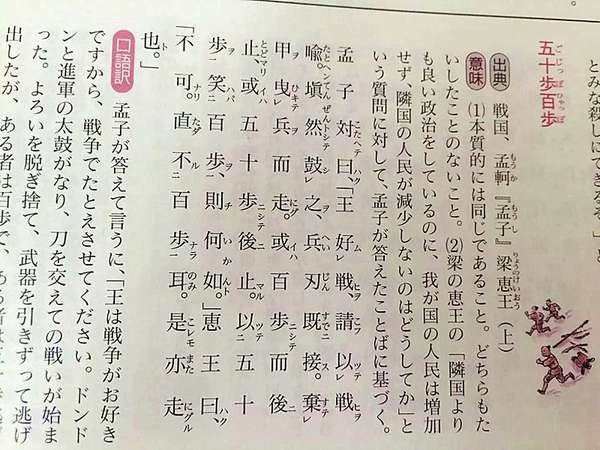 とみな殺しにできるぞ。」と
五十歩百歩
出典 戦国、孟軻『孟子』梁恵王(上)
意味 (1)本質的には同じであること。どちらもた
いしたことのないこと。(2)梁の恵王の「隣国より
も良い政治をしているのに、我が国の人民は増加
せず、隣国の人民が減少しないのはどうしてか」と
いう質問に対して、孟子が答えたことばに基づく。
孟子対曰、「王好戦。請以戦
喩。塡然鼓之、兵刃既接。棄
甲曳兵而走。或百歩而後
止、或五十歩後止。以五十
歩笑百歩、則何如。」恵王曰、
「不可。直不百歩耳。是亦走
也。」
口語訳 孟子が答えて言うに、「王は戦争がお好き
ですから、戦争でたとえさせてください。ドンド
ンと進軍の太鼓がなり、刀を交えての戦いが始ま
った。よろいを脱ぎ捨て、武器を引きずって逃げ
出したが、ある者は百歩で、ある者は